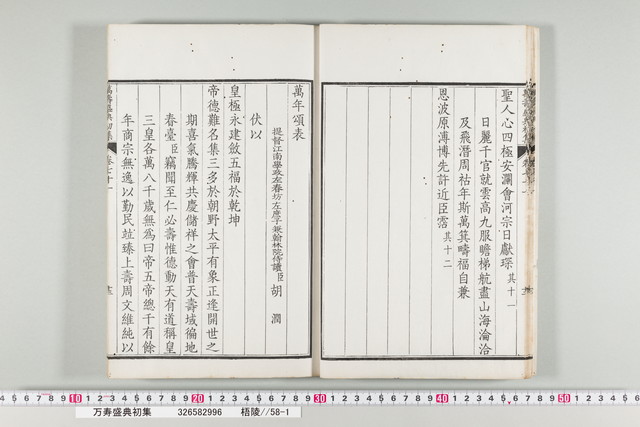 聖人心四極安瀾會河宗日獻琛其十一
日麗千官就雲高九服瞻梯航盡山海淪洽
及飛潛周祜年斯萬箕疇福自兼
恩波原溥博先許近臣霑其十二
萬年頌表
提督江南學政左春坊左庶子兼翰林院侍讀臣胡潤
伏以
皇極永建斂五福於乾坤
帝德難名集三多於朝野太平有象正逢開世之
期喜氣騰輝共慶儲祥之會普天壽域徧地
春臺臣竊聞至仁必壽惟德動天有道稱皇
三皇各萬八千歲無為曰帝五帝總千有餘
年商宗無逸以勤民竝臻上壽周文維純以
萬壽盛典初集 卷七十一
10 20 30 40 50
万寿盛典初集 326582996 梧陵//58-1